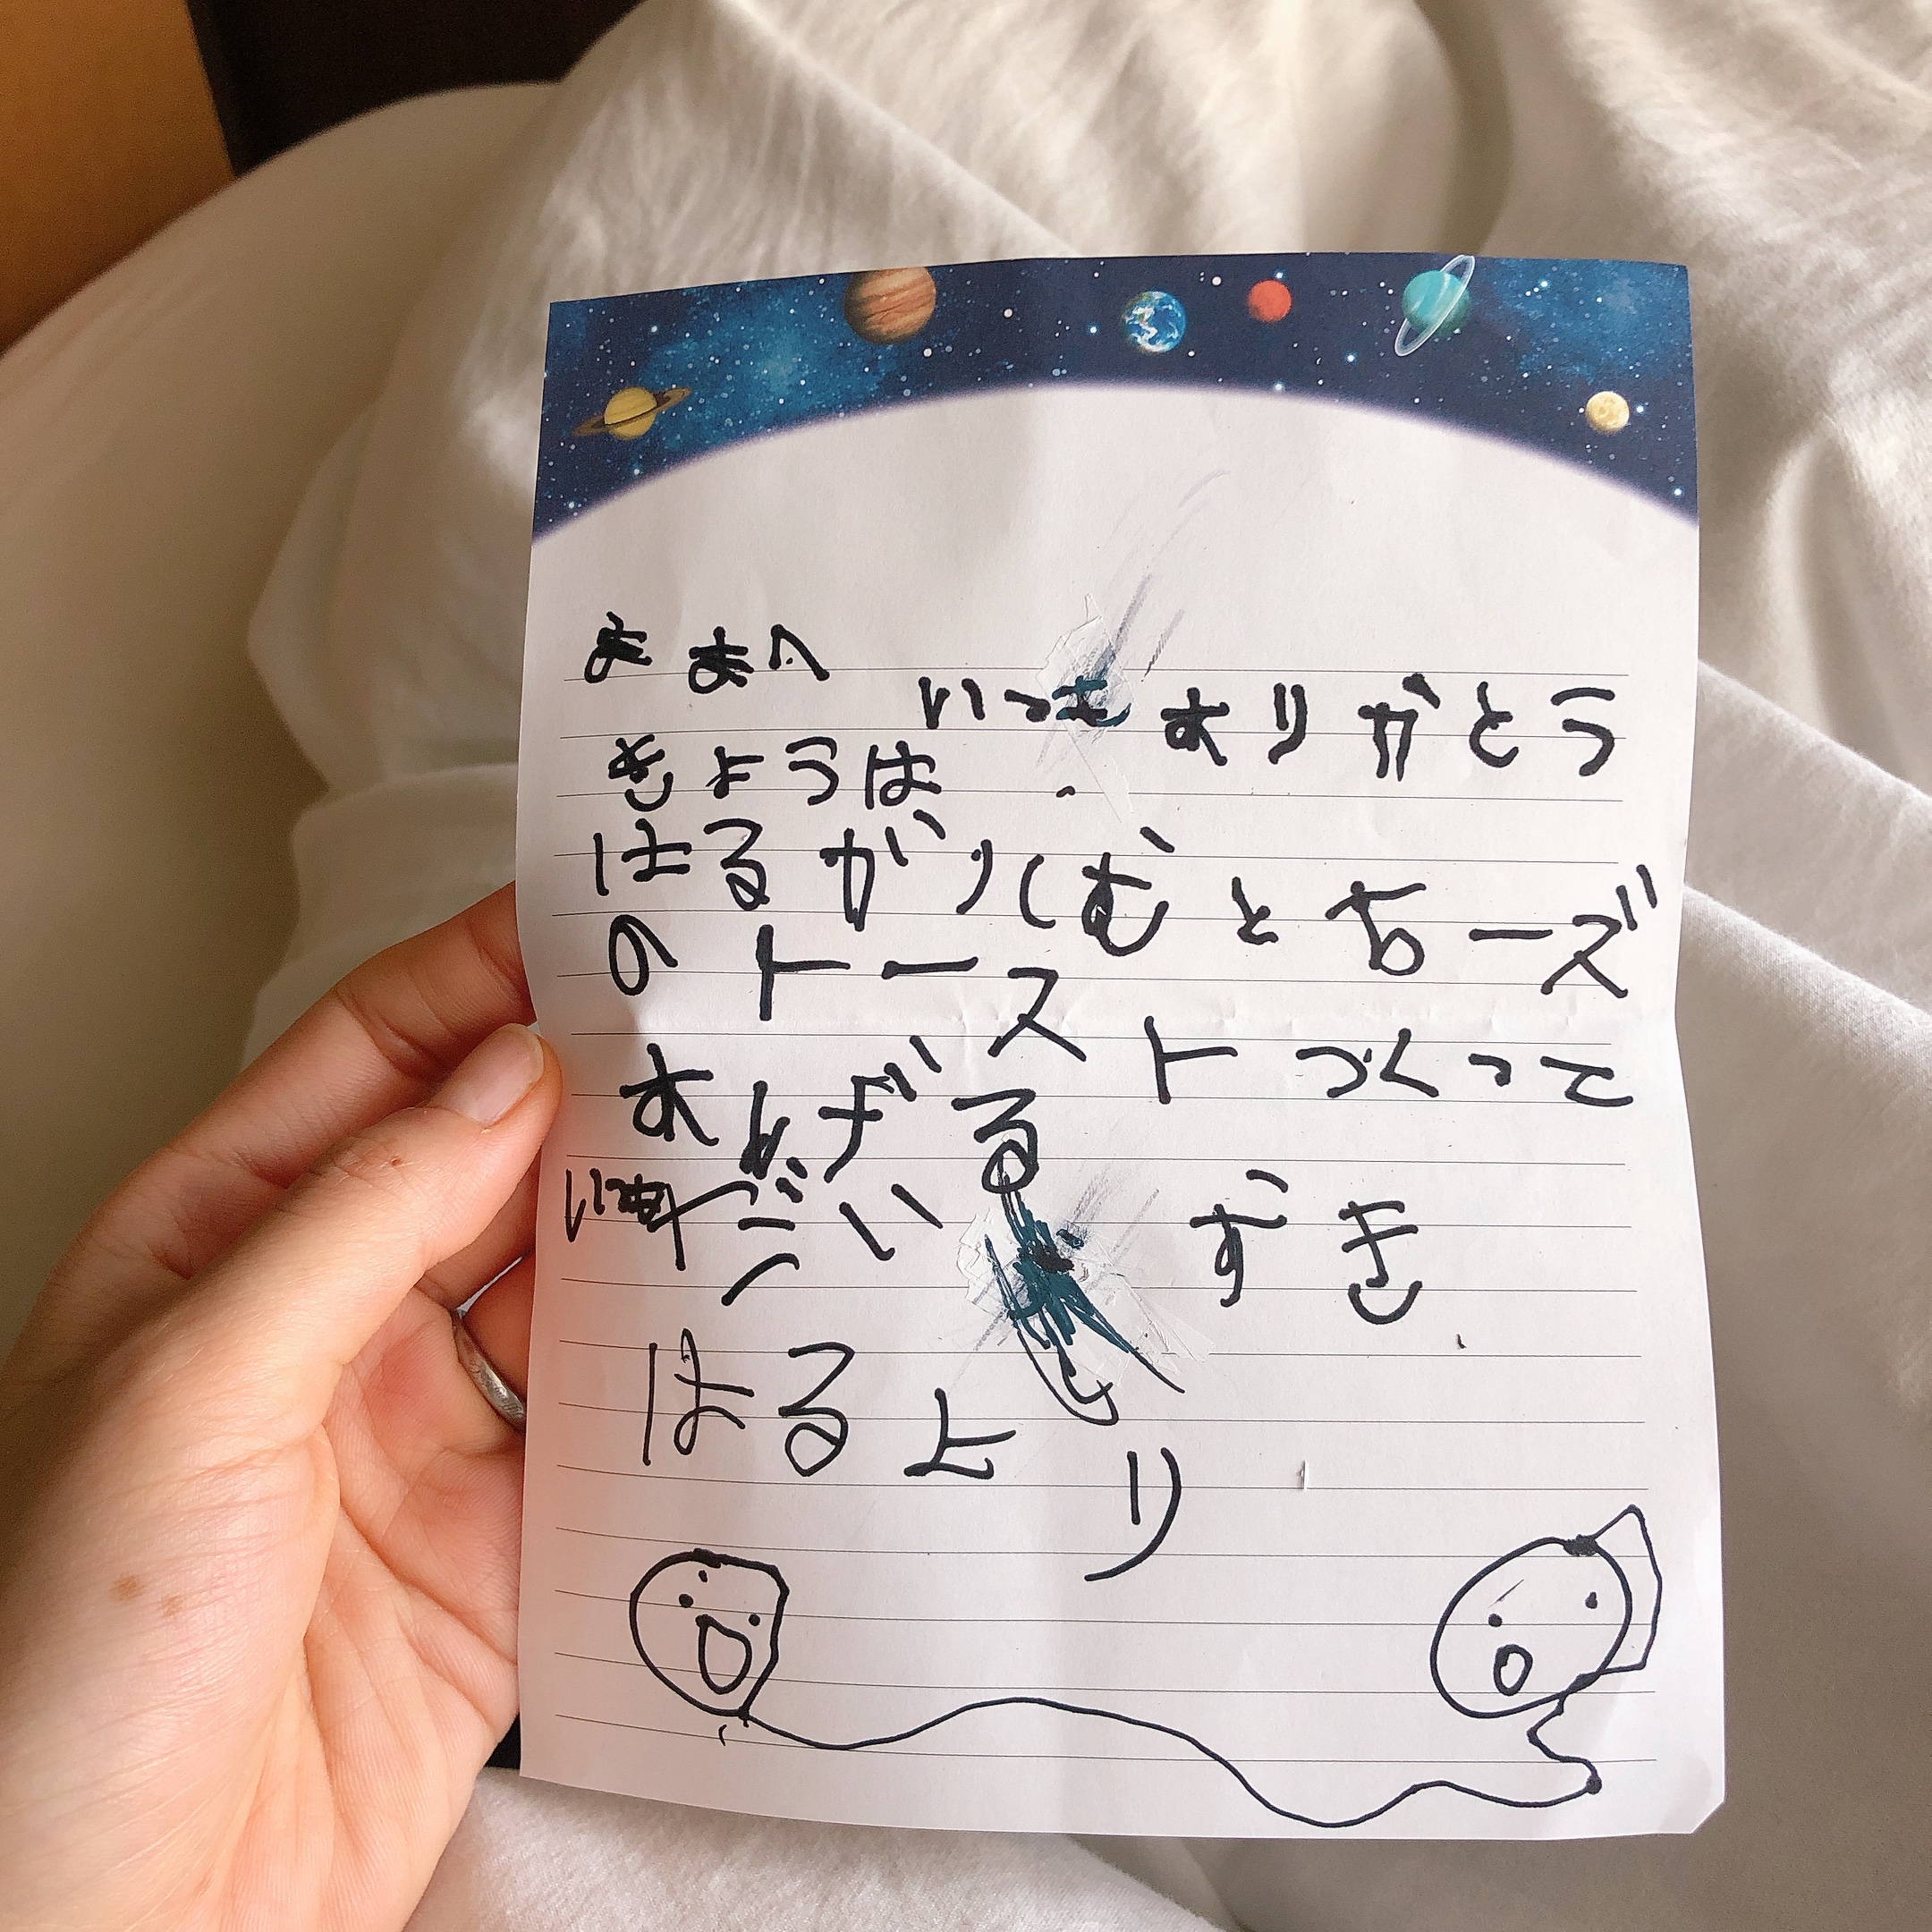 ままへ
いつも ありがとう
きょうは
はるがはむとちーズ
のトースト つくって
あげる
だいすき
はるより